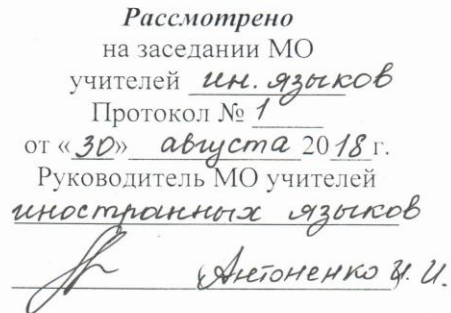 Рассмотрено
на заседании МО
учителей ин. языков
Протокол № 1
от «30» августа 2018 г.
Руководитель МО учителей
иностранных языков
Антоненко И. И.